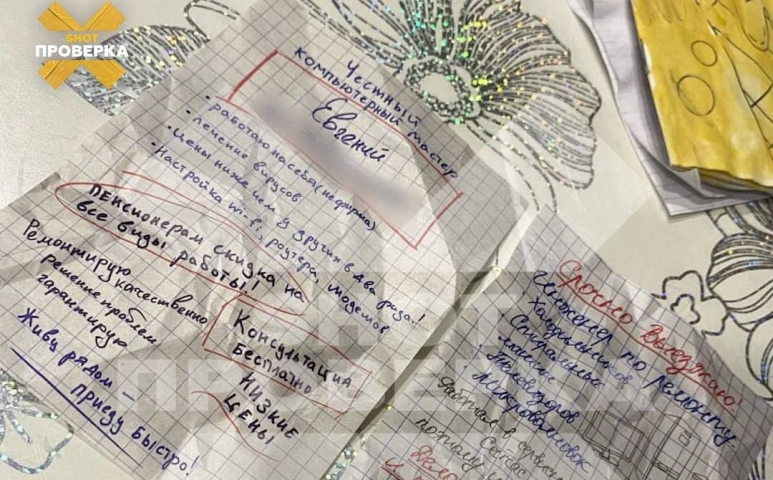 SHOT
ПРОВЕРКА
Честный
компьютерный мастер
Евгений
- работаю на себя (не фирма)
- лечение вирусов
- Цены ниже чем у других в два раза!
- Настройка wi-fi, роутера, модемов
ПЕНСИОНЕРАМ скидка на
все виды работы!
Ремонтирую качественно
решение проблем
гарантирую
Консультация
Бесплатно
Живу рядом -
приеду быстро!
НИЗКИЕ
ЦЕНЫ
Срочно Выезжаю.
Инженер по ремонту
Холодильников
Стиральных
машин
Микроволновок
Работал в
потому